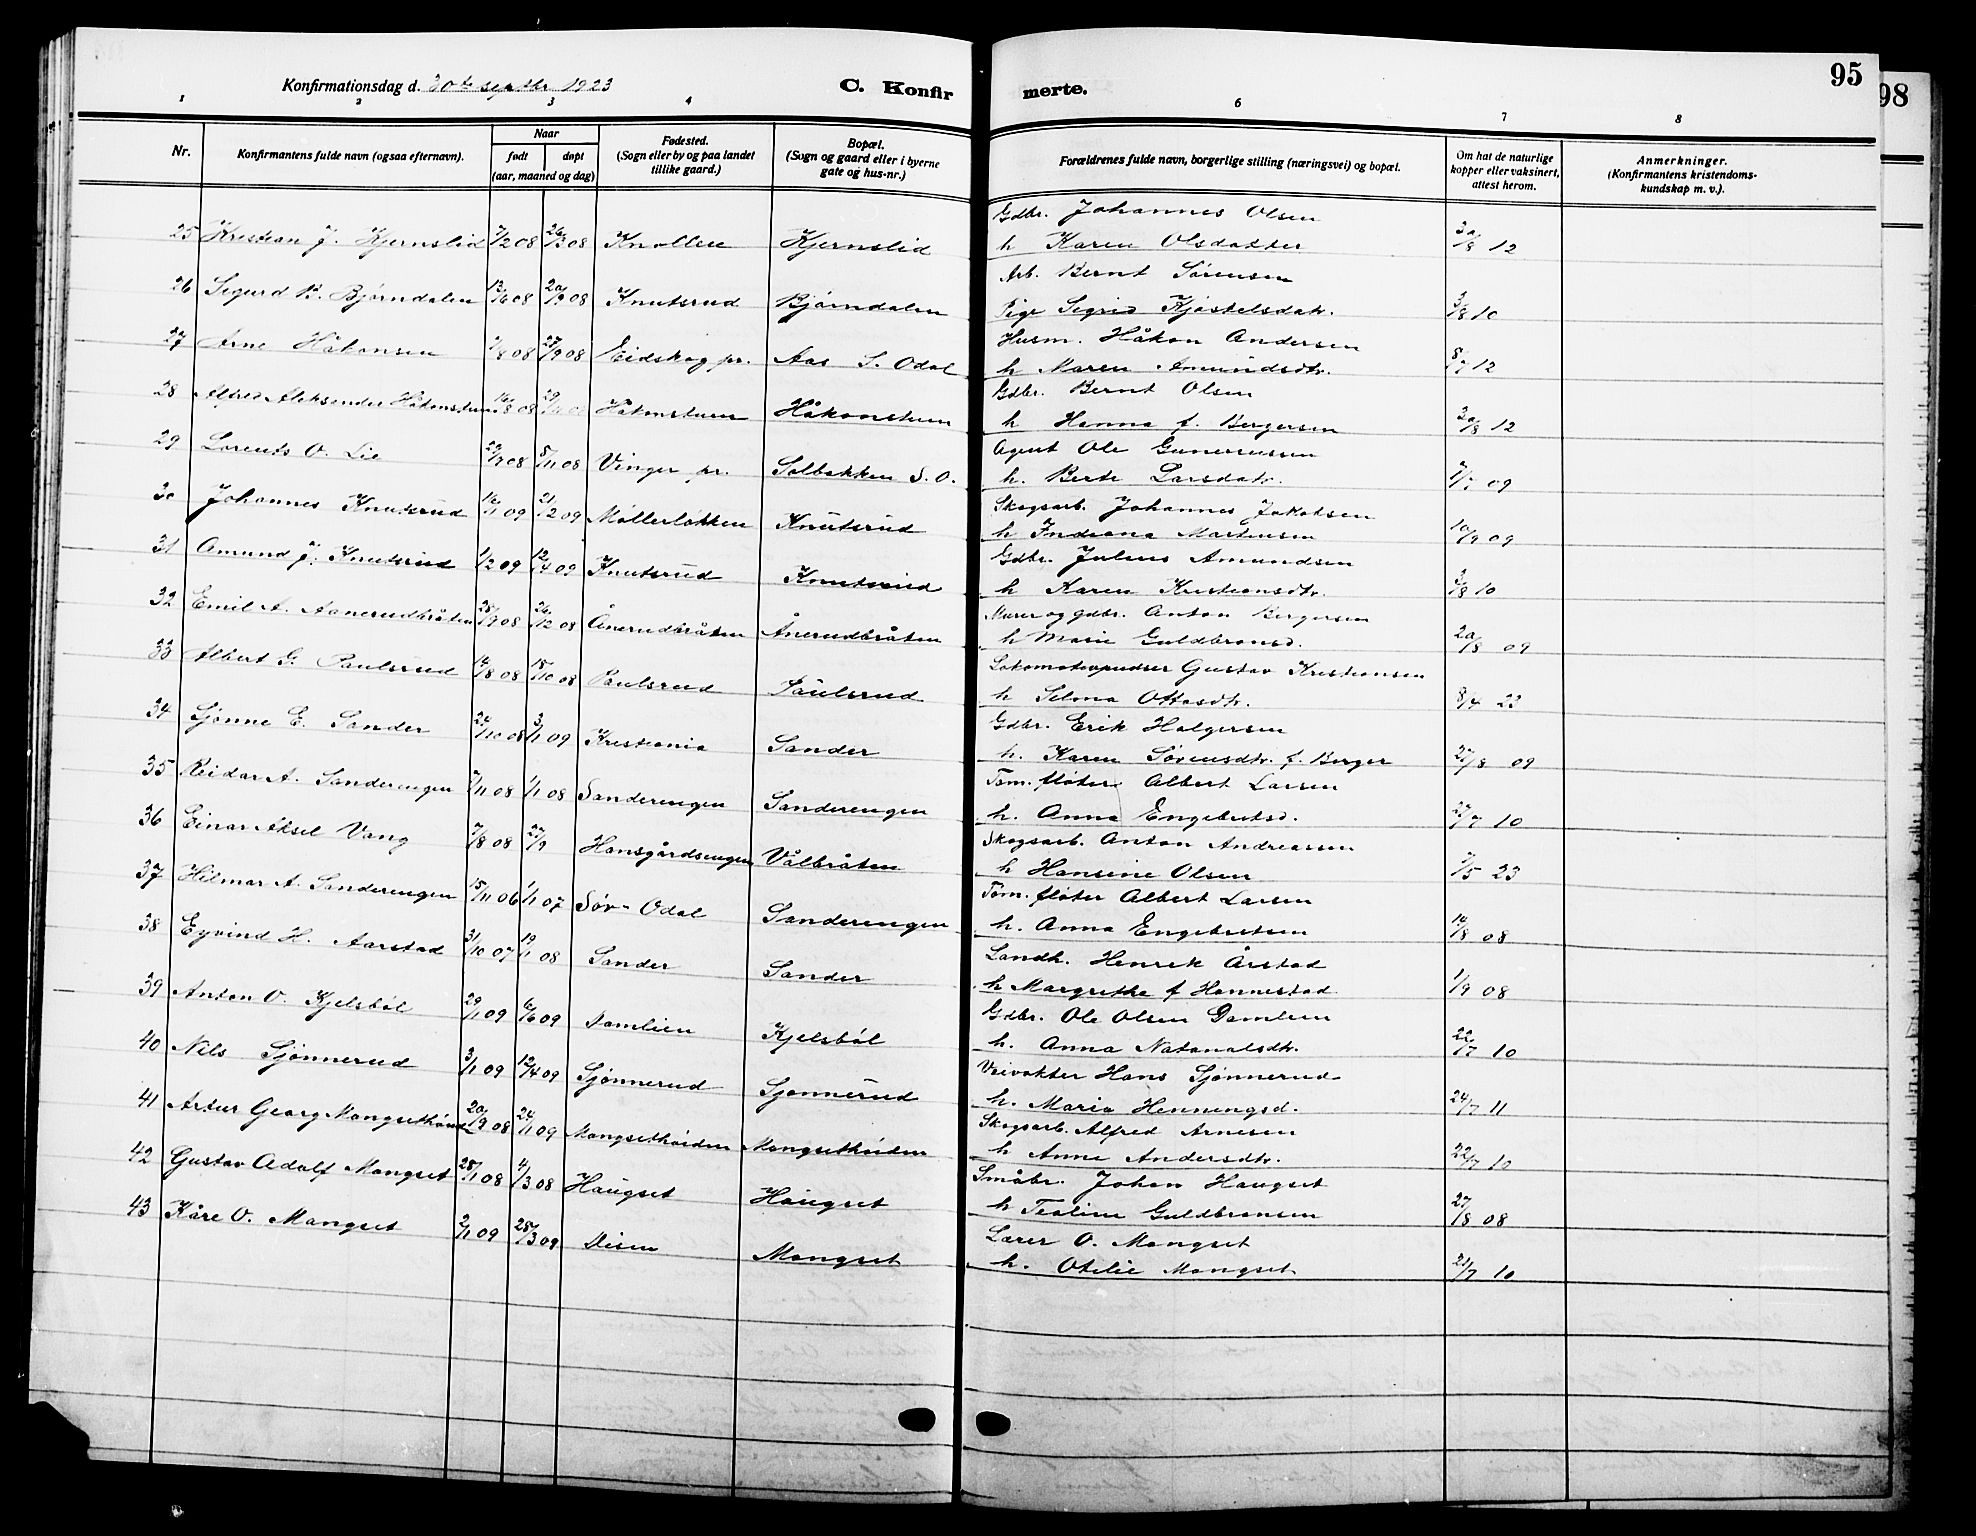 95
98
Konfirmationsdag d. 30te septbr 1923
C. Konfir merte.
1 2 3 4 6 7 8
Nr.
Konfirmantens fulde navn (ogsaa efternavn).
Naar
født døpt
(aar, maaned og dag)
Fødested.
(Sogn eller by og paa landet
tillike gaard.)
Bopæl.
(Sogn og gaard eller i byerne
gate og hus-nr.)
Forældrenes fulde navn, borgerlige stilling (næringsvei) og bopæl.
Om hat de naturlige
kopper eller vaksinert,
attest herom.
Anmerkninger.
(Konfirmantens kristendoms-
kundskap m. v.).
Gdbr. Johannes Olsen
25 Kristian J. Kjernslid 7/2 08 26/3 08 Knollen Kjernslid h Karen Olsdatter 30/8 12
Arb. Bernt Sørensen
26 Sigurd B. Bjørndalen 13/6 08 20/9 08 Knutsrud Bjørndalen Pige Sigrid Kjøstelsdatr. 3/8 10
Husm. Håkon Andersen
27 Arne Håkonsen 7/8 08 27/9 08 Eidskog pr. Aas S. Odal h Maren Amundsdtr. 8/7 12
Gdbr. Bernt Olsen
28 Alfred Aleksander Håkonstuen 16/8 08 29/11 08 Håkonstuen Håkonstuen h Hanna f. Bergersen 30/8 12
Agent Ole Guneriussen
29 Lorents O. Lie 29/9 08 8/11 08 Vinger pr. Solbakken S. O. h. Berte Larsdatr. 7/7 09
Skogsarb. Johannes Jakobsen
30 Johannes Knutsrud 16/1 09 21/2 09 Møllerløkken Knutsrud h Indiana Martinsen 10/9 09
Gdbr. Julius Amundsen
31 Amund J. Knutsrud 1/2 09 12/4 09 Knutsrud Knutsrud h Karen Kristiansdtr. 3/8 10
Murer og gdbr. Anton Bergersen
32 Emil A. Aanerudbråten 28/9 08 26/12 08 Ånerudbråten Ånerudbråten h Marie Guldbransd. 20/8 09
Lokomotivpudser Gustav Kristiansen
33 Albert G. Paulsrud 14/8 08 18/10 08 Paulsrud Paulsrud h Selma Ottosdtr. 8/4 23
Gdbr. Erik Holgersen
34 Sjønne E. Sander 24/10 08 3/1 09 Kristiania Sander h. Karen Sørensdtr. f. Berger 27/8 09
Tøm. fløter Albert Larsen
35 Reidar A. Sanderengen 7/11 08 1/1 08 Sanderengen Sanderengen h. Anna Engebretsd. 23/7 10
Skogsarb. Anton Andreassen
36 Einar Aksel Vang 7/8 08 27/9 Hansgårdsengen Vålbråten h Hansine Olsen 7/5 23
Tøm. fløter Albert Larsen
37 Hilmar A. Sanderengen 15/11 06 1/1 07 Sør-Odal Sanderengen h. Anna Engebretsen 14/8 08
Landh. Henrik Årstad
38 Eyvind H. Aarstad 31/10 07 19/1 08 Sander Sander h Margrethe f Hannestad 1/9 08
Gdbr. Ole Olsen Damlien
39 Anton O. Kjelsbøl 29/1 09 6/6 09 Damlien Kjelsbøl h. Anna Natanalsdtr. 22/7 10
Veivokter Hans Sjønnerud
40 Nils Sjønnerud 3/1 09 12/4 09 Sjønnerud Sjønnerud h. Maria Henningsd. 24/7 11
Skogsarb. Alfred Arnesen
41 Artur Georg Mangsethøiden 20/9 08 24/1 09 Mangsethøiden Mangsethøiden h Anne Andersdtr. 22/7 10
Småbr. Johan Haugset
42 Gustav Adolf Mangset 28/1 08 4/3 08 Haugset Haugset h Teoline Guldbransen 27/8 08
Lærer O. Mangset
43 Kåre O. Mangset 2/1 09 28/3 09 Disen Mangset h. Otilie Mangset 21/7 10